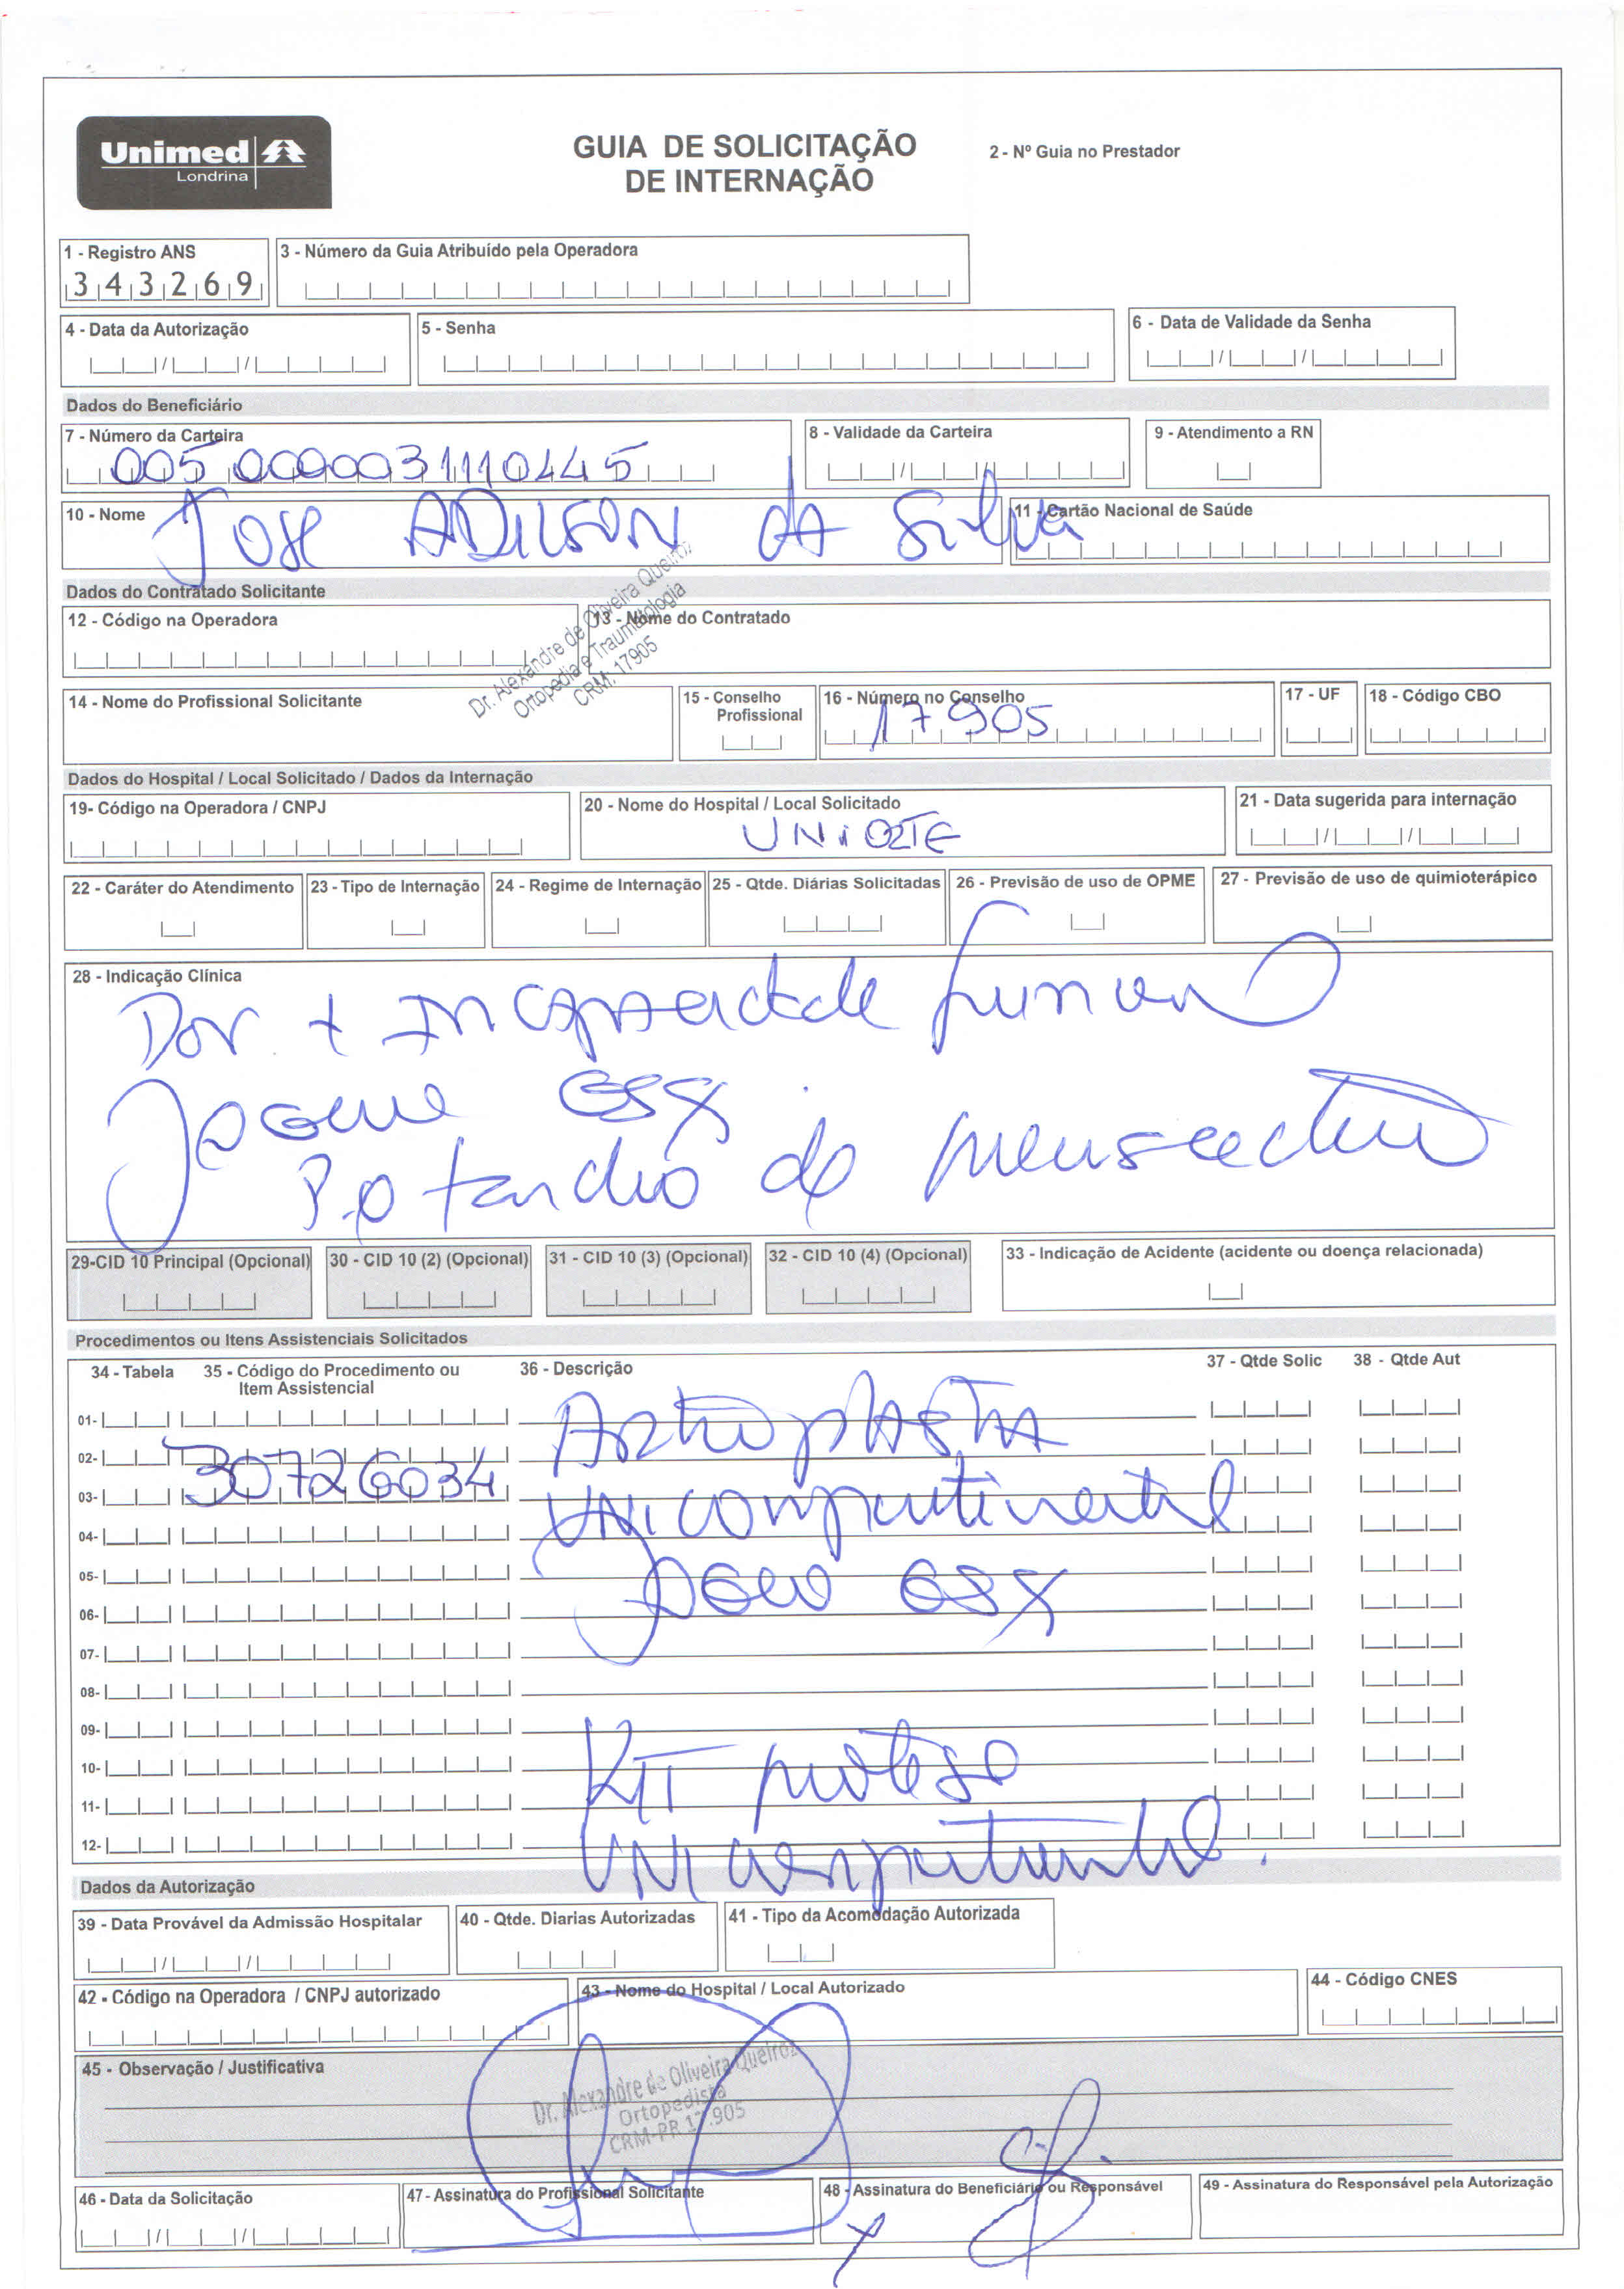 Unimed
Londrina
GUIA DE SOLICITAÇÃO
DE INTERNAÇÃO
2 - Nº Guia no Prestador
1 - Registro ANS
343269
3 - Número da Guia Atribuído pela Operadora
4 - Data da Autorização
5 - Senha
6 - Data de Validade da Senha
Dados do Beneficiário
7 - Número da Carteira
8 - Validade da Carteira
9 - Atendimento a RN
10 - Nome
JOSE ADILSON da Silva
11 - Cartão Nacional de Saúde
Dados do Contratado Solicitante
12 - Código na Operadora
13 - Nome do Contratado
Dr. Alexandre de Oliveira Queiroz
Ortopedia e Traumatologia
CRM: 17905
14 - Nome do Profissional Solicitante
15 - Conselho
Profissional
16 - Número no Conselho
17905
17 - UF
18 - Código CBO
Dados do Hospital / Local Solicitado / Dados da Internação
19- Código na Operadora / CNPJ
20 - Nome do Hospital / Local Solicitado
UNiORTE
21 - Data sugerida para internação
22 - Caráter do Atendimento
23 - Tipo de Internação
24 - Regime de Internação
25 - Qtde. Diárias Solicitadas
26 - Previsão de uso de OPME
27 - Previsão de uso de quimioterápico
28 - Indicação Clínica
Dor + Incapacidade
29-CID 10 Principal (Opcional)
30 - CID 10 (2) (Opcional)
31 - CID 10 (3) (Opcional)
32 - CID 10 (4) (Opcional)
33 - Indicação de Acidente (acidente ou doença relacionada)
Procedimentos ou Itens Assistenciais Solicitados
34 - Tabela
35 - Código do Procedimento ou
Item Assistencial
36 - Descrição
37 - Qtde Solic
38 - Qtde Aut
01-
Artroplastia
02-
30726034
03-
Unicompartimental
04-
05-
06-
07-
08-
09-
10-
KIT protese
11-
12-
Unicompartimental.
Dados da Autorização
39 - Data Provável da Admissão Hospitalar
40 - Qtde. Diarias Autorizadas
41 - Tipo da Acomodação Autorizada
42 - Código na Operadora / CNPJ autorizado
43 - Nome do Hospital / Local Autorizado
44 - Código CNES
45 - Observação / Justificativa
Dr. Alexandre de Oliveira Queiroz
Ortopedista
CRM-PR 17.905
46 - Data da Solicitação
47 - Assinatura do Profissional Solicitante
48 - Assinatura do Beneficiário ou Responsável
X
49 - Assinatura do Responsável pela Autorização